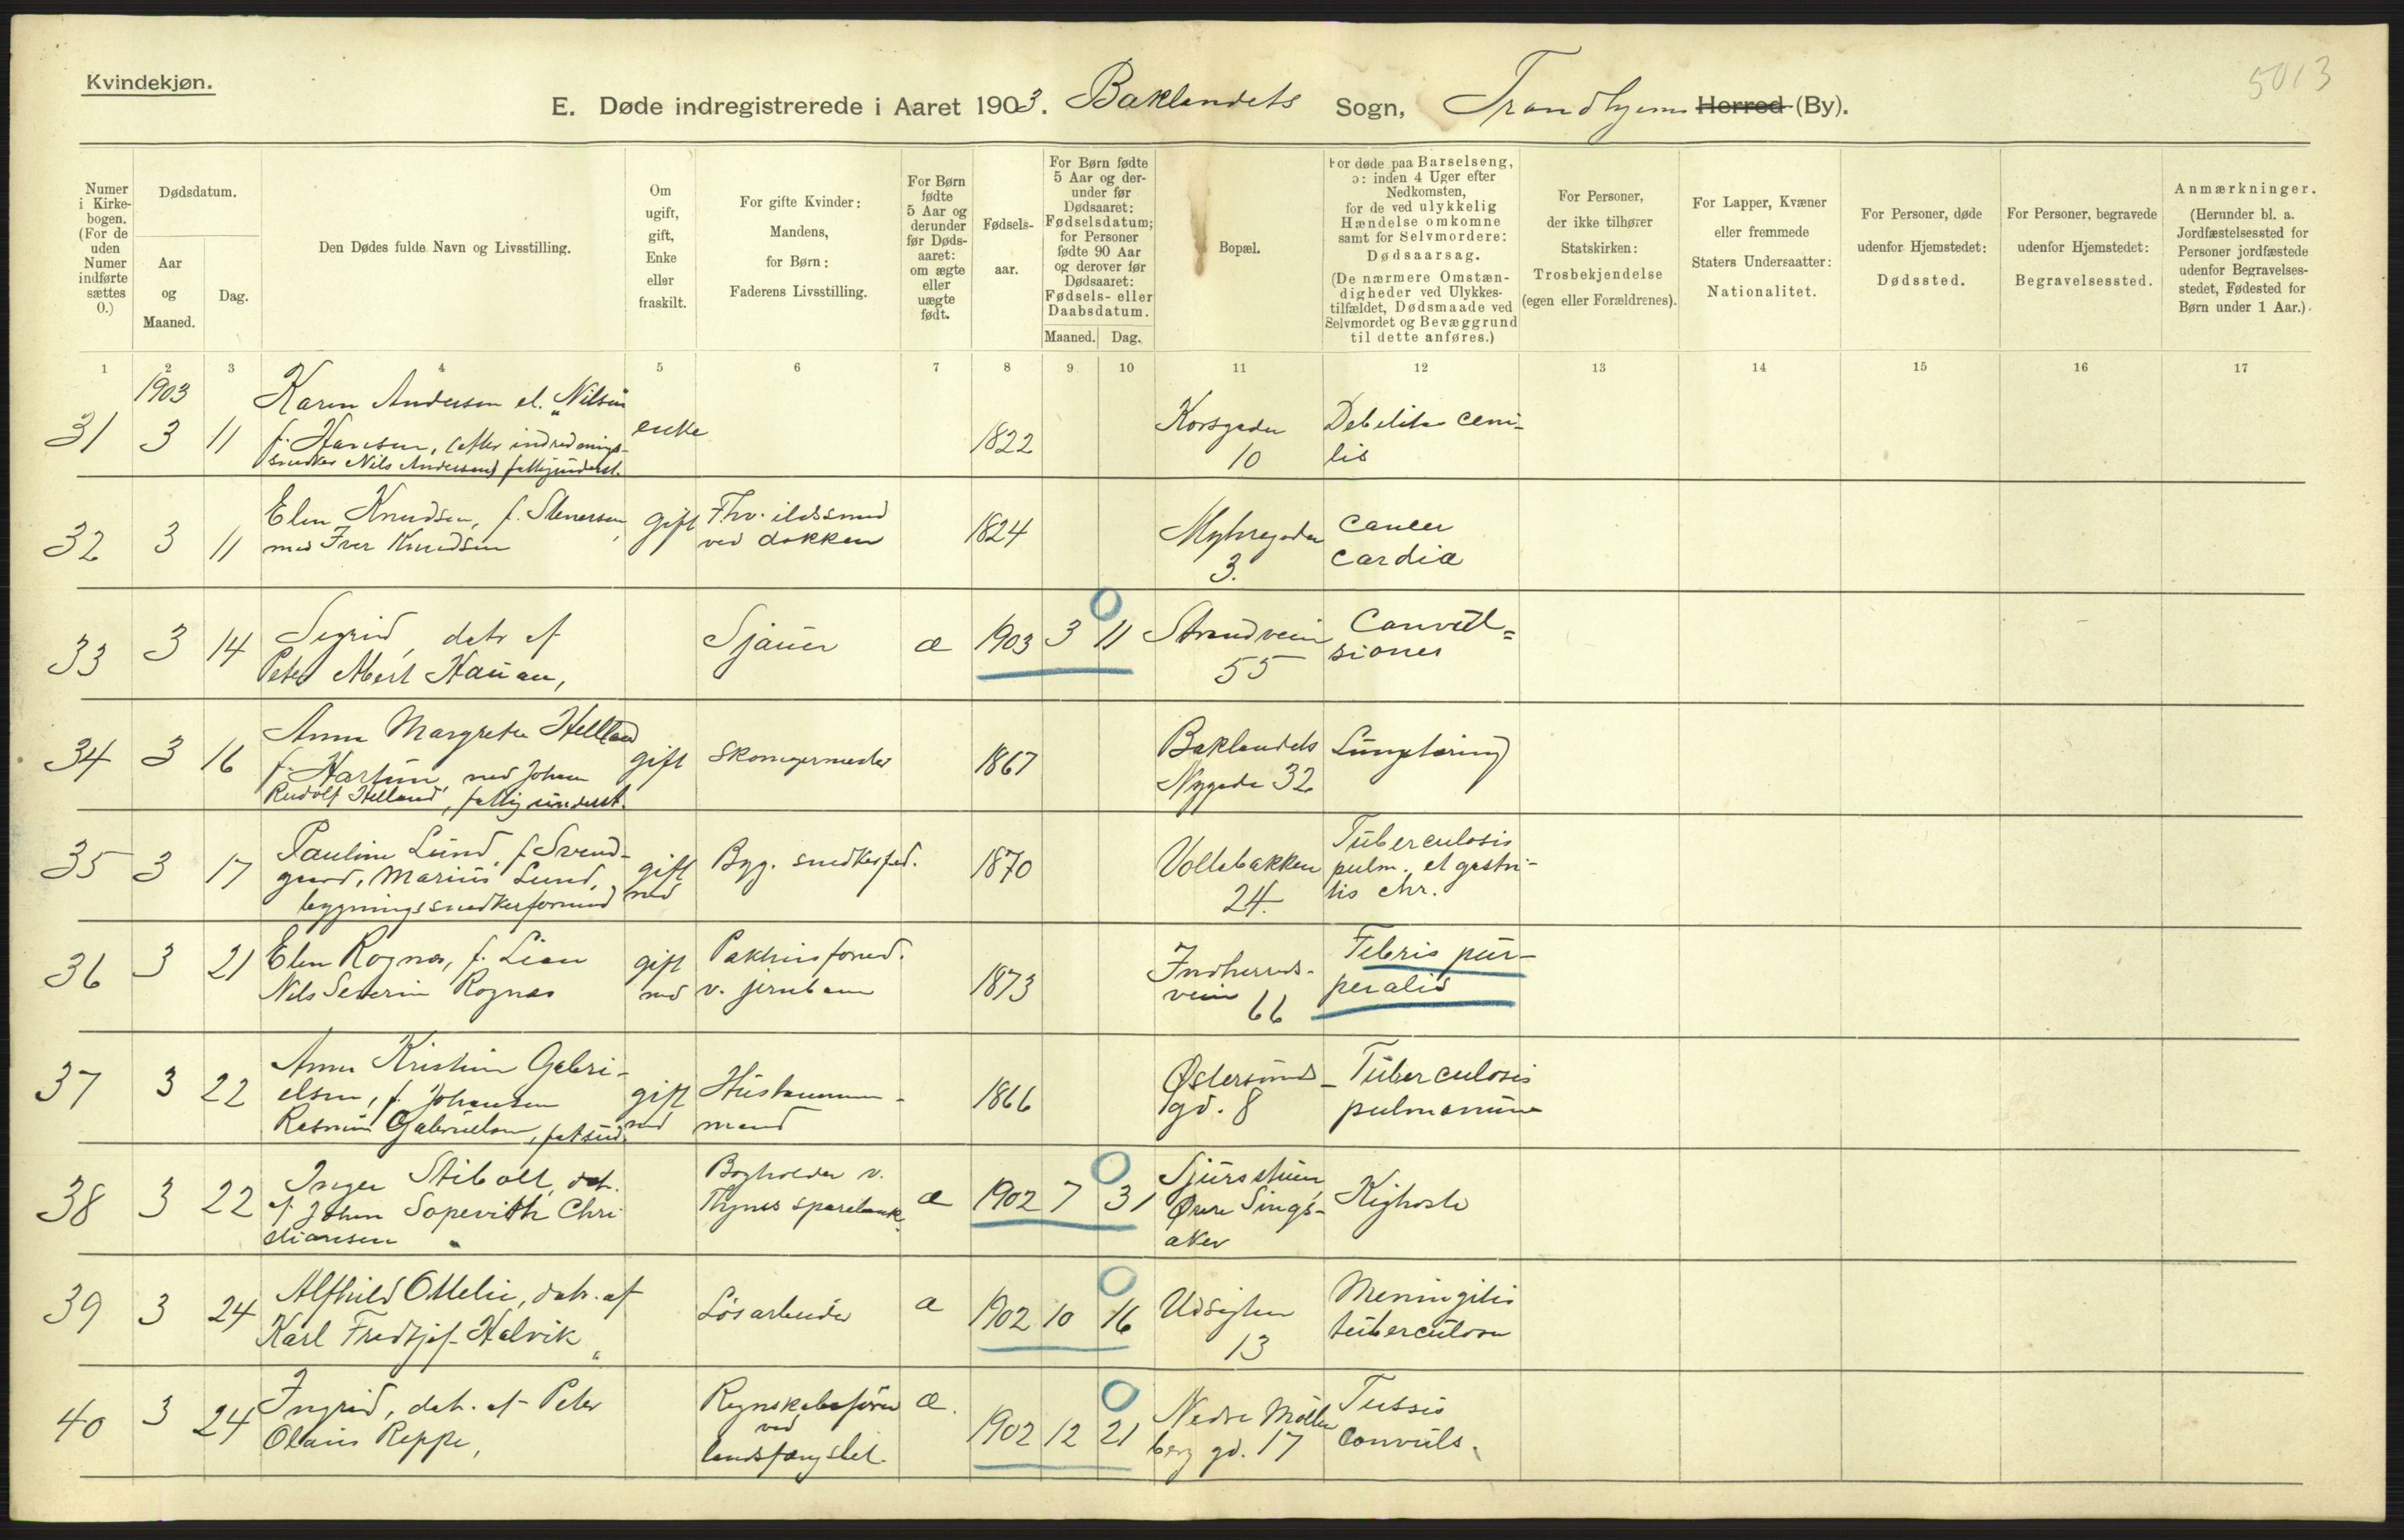 Kvindekjøn.
5013
E. Døde indregistrerede i Aaret 1903. Baklandets Sogn, Trondhjems Herred (By).
Numer i Kirkebogen. (For de uden Numer indførte sættes 0.)
Dødsdatum.
Aar og Maaned.
Dag.
Den Dødes fulde Navn og Livsstilling.
Om ugift, gift, Enke eller fraskilt.
For gifte Kvinder: Mandens, for Børn: Faderens Livsstilling.
For Børn fødte 5 Aar og derunder før Dødsaaret: om ægte eller uægte født.
Fødselsaar.
For Børn fødte 5 Aar og derunder før Dødsaaret: Fødselsdatum; for Personer fødte 90 Aar og derover før Dødsaaret: Fødsels- eller Daabsdatum.
Maaned. Dag.
Bopæl.
For døde paa Barselseng, ɔ: inden 4 Uger efter Nedkomsten, for de ved ulykkelig Hændelse omkomne samt for Selvmordere: Dødsaarsag. (De nærmere Omstændigheder ved Ulykkestilfældet, Dødsmaade ved Selvmordet og Bevæggrund til dette anføres.)
For Personer, der ikke tilhører Statskirken: Trosbekjendelse (egen eller Forældrenes).
For Lapper, Kvæner eller fremmede Staters Undersaatter: Nationalitet.
For Personer, døde udenfor Hjemstedet: Dødssted.
For Personer, begravede udenfor Hjemstedet: Begravelsessted.
Anmærkninger. (Herunder bl. a. Jordfæstelsessted for Personer jordfæstede udenfor Begravelsesstedet, Fødested for Børn under 1 Aar.)
1 2 3 4 5 6 7 8 9 10 11 12 13 14 15 16 17
1903
31 3 11 Karen Andersen el. Nilsen
f. Hansen, (efter indrednings-
snedker Nils Andersen) fattigunderst.
enke 1822
Korsgaden
10
Debilitas ceni-
lis
32 3 11 Elen Knudsen, f. Stenersen,
med Iver Knudsen
gift
Fhv. ildsmed
ved dokken
1824
Myhregaden
3.
Cancer
cardia
33 3 14 Sigrid, datr af
Peter Albert Hauan,
Sjauer æ 1903 3 11 0
Strandveien
55
Convul=
sioner
34 3 16 Anna Margrethe Helland
f. Hartun, med Johan
Rudolf Helland, fattigunderst.
gift Skomagermester 1867
Baklandets
Nygade 32
Lungetæring
35 3 17 Pauline Lund, f. Svend-
gaard, Marius Lund,
bygningssnedkerformand
gift
med
Byg. snedkerfod. 1870
Vollabakken
24.
Tuberculosis
pulm. et gastri-
tis chr.
36 3 21 Elen Rognes, f. Lien
Nils Severin Rognæs
gift
med
Pakhusformd.
v. jernbanen
1873
Indherreds-
veien 66
Febris puer-
peralis
37 3 22 Anna Kristine Gabri-
elsen, f. Johansen
Rasmus Gabrielsen, fat. und.
gift
med
Hustømmer-
mand
1866
Østersunds-
gd. 8
Tuberculosis
pulmonum
38 3 22 Inger Stibolt, dat.
af Johan Sopevith Chri-
stiansen
Bogholder v.
Thjems sparebank
æ 1902 7 31 0
Sjursstuen,
Øvre Sings-
aker
Kighoste
39 3 24 Alfhild Ottelie, datr. af
Karl Fredtjof Halvik
Løsarbeider æ 1902 10 16 0
Udsigten
13
Meningitis
tuberculosa
40 3 24 Ingrid, dat. af Peter
Olaus Reppe,
Regnskabsfører
ved
landsfængslet.
æ. 1902 12 21 0
Nedre Møllen
berg gd. 17
Tussis
convuls.